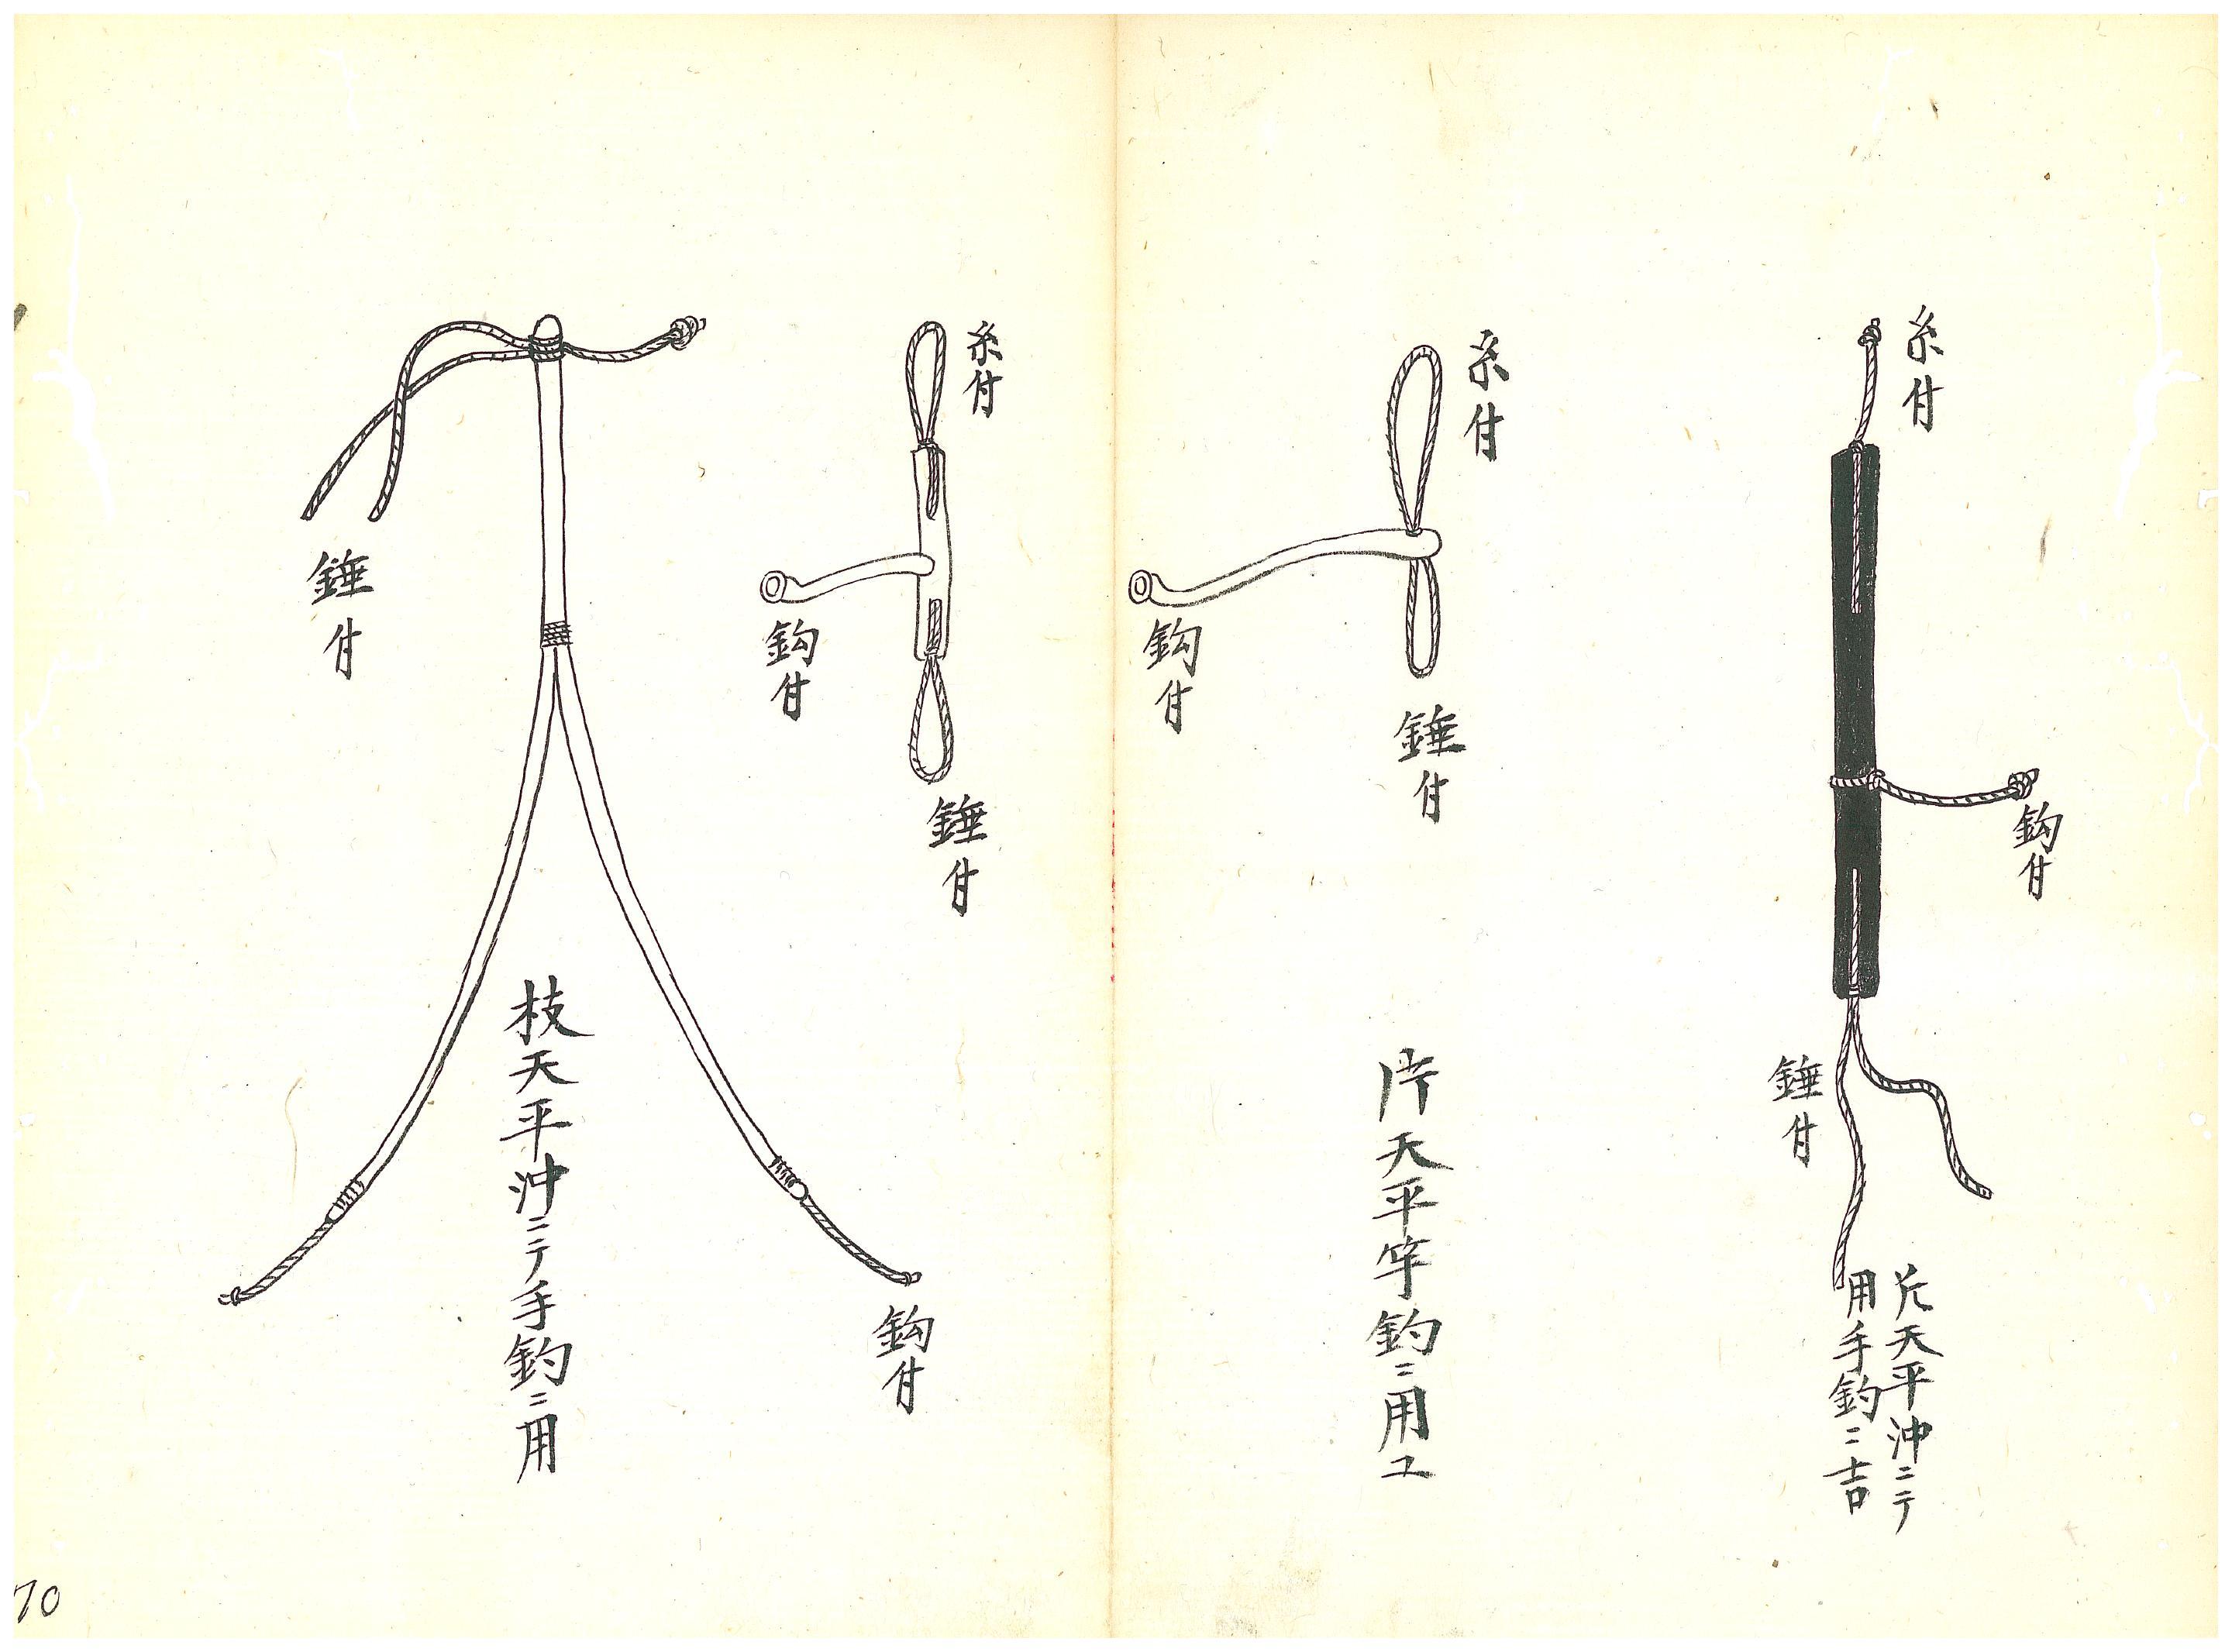 糸付
鈎付
錘付
片天平沖ニテ
用手釣ニ吉
糸付
鈎付
錘付
片天平竿釣ニ用ユ
糸付
鈎付
錘付
錘付
枝天平沖ニテ手釣ニ用
鈎付
70